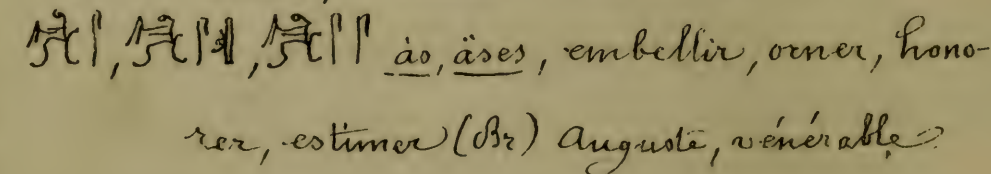 ào, äses, embellir, orner, hono-
rer, estimer (Br) Auguste, vénérable